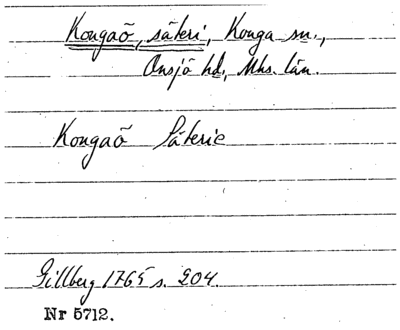 Kongaö, säteri, Konga sn.,
Onsjö hd., Mhs. län.
Kongaö Säterie
Gillberg 1765 s. 204.
Nr 5712.